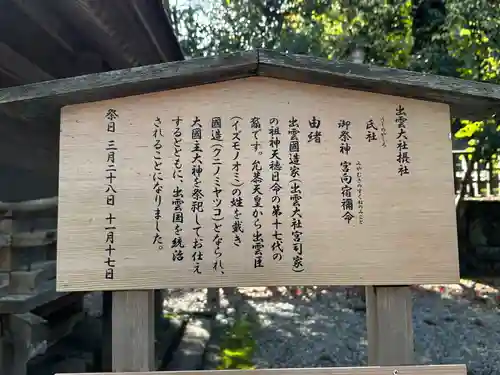 出雲大社摂社
氏社
うじのやしろ
御祭神 宮向宿禰命
みやむきのすくねのみこと
由緒
出雲国造家(出雲大社宮司家)
の祖神天穂日命の第十七代の
裔です。允恭天皇から出雲臣
(イズモノオミ)の姓を戴き
国造(クニノミヤツコ)となられ、
大國主大神を祭祀してお仕え
するとともに、出雲国を統治
されることになりました。
祭日 三月二十八日 十一月十七日